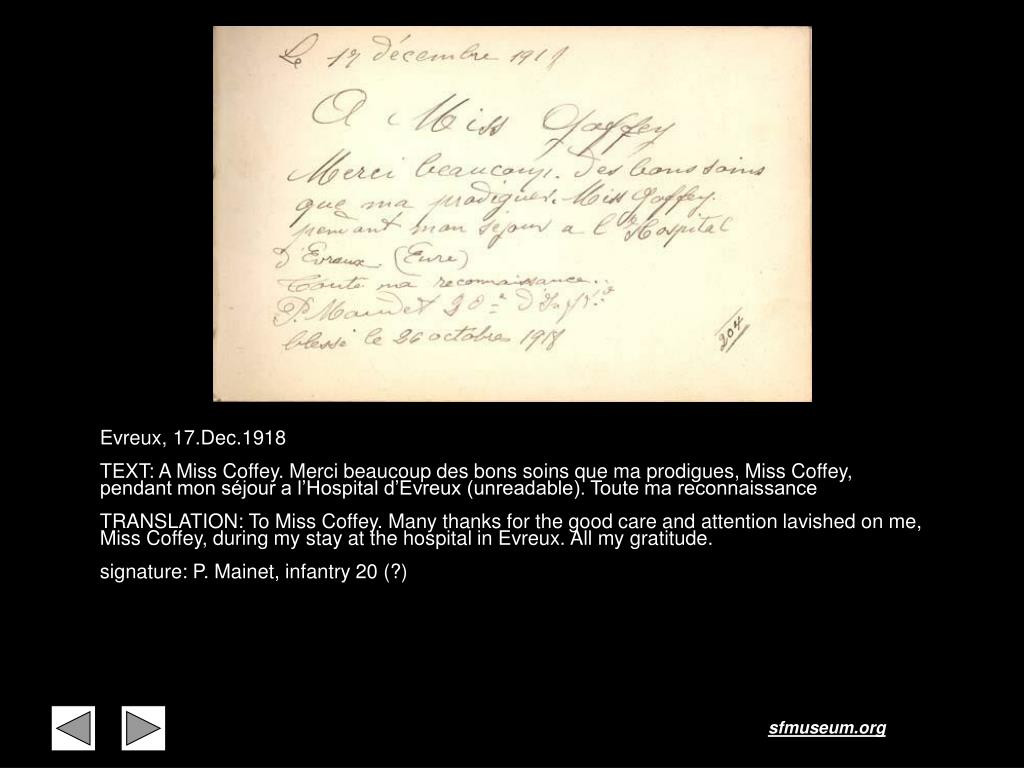 Le 17 décembre 1918
A Miss Goffey
Merci beaucoup. Des bons soins
que ma prodigues. Miss Goffey.
pendant mon séjour a l'Hospital
d'Evreux (Eure)
Toute ma reconnaissance..
P. Maudet 20e d'Inft.ie
blessé le 26 octobres 1918
204
Evreux, 17.Dec.1918
TEXT: A Miss Coffey. Merci beaucoup des bons soins que ma prodigues, Miss Coffey,
pendant mon séjour a l'Hospital d'Evreux (unreadable). Toute ma reconnaissance
TRANSLATION: To Miss Coffey. Many thanks for the good care and attention lavished on me,
Miss Coffey, during my stay at the hospital in Evreux. All my gratitude.
signature: P. Mainet, infantry 20 (?)
sfmuseum.org